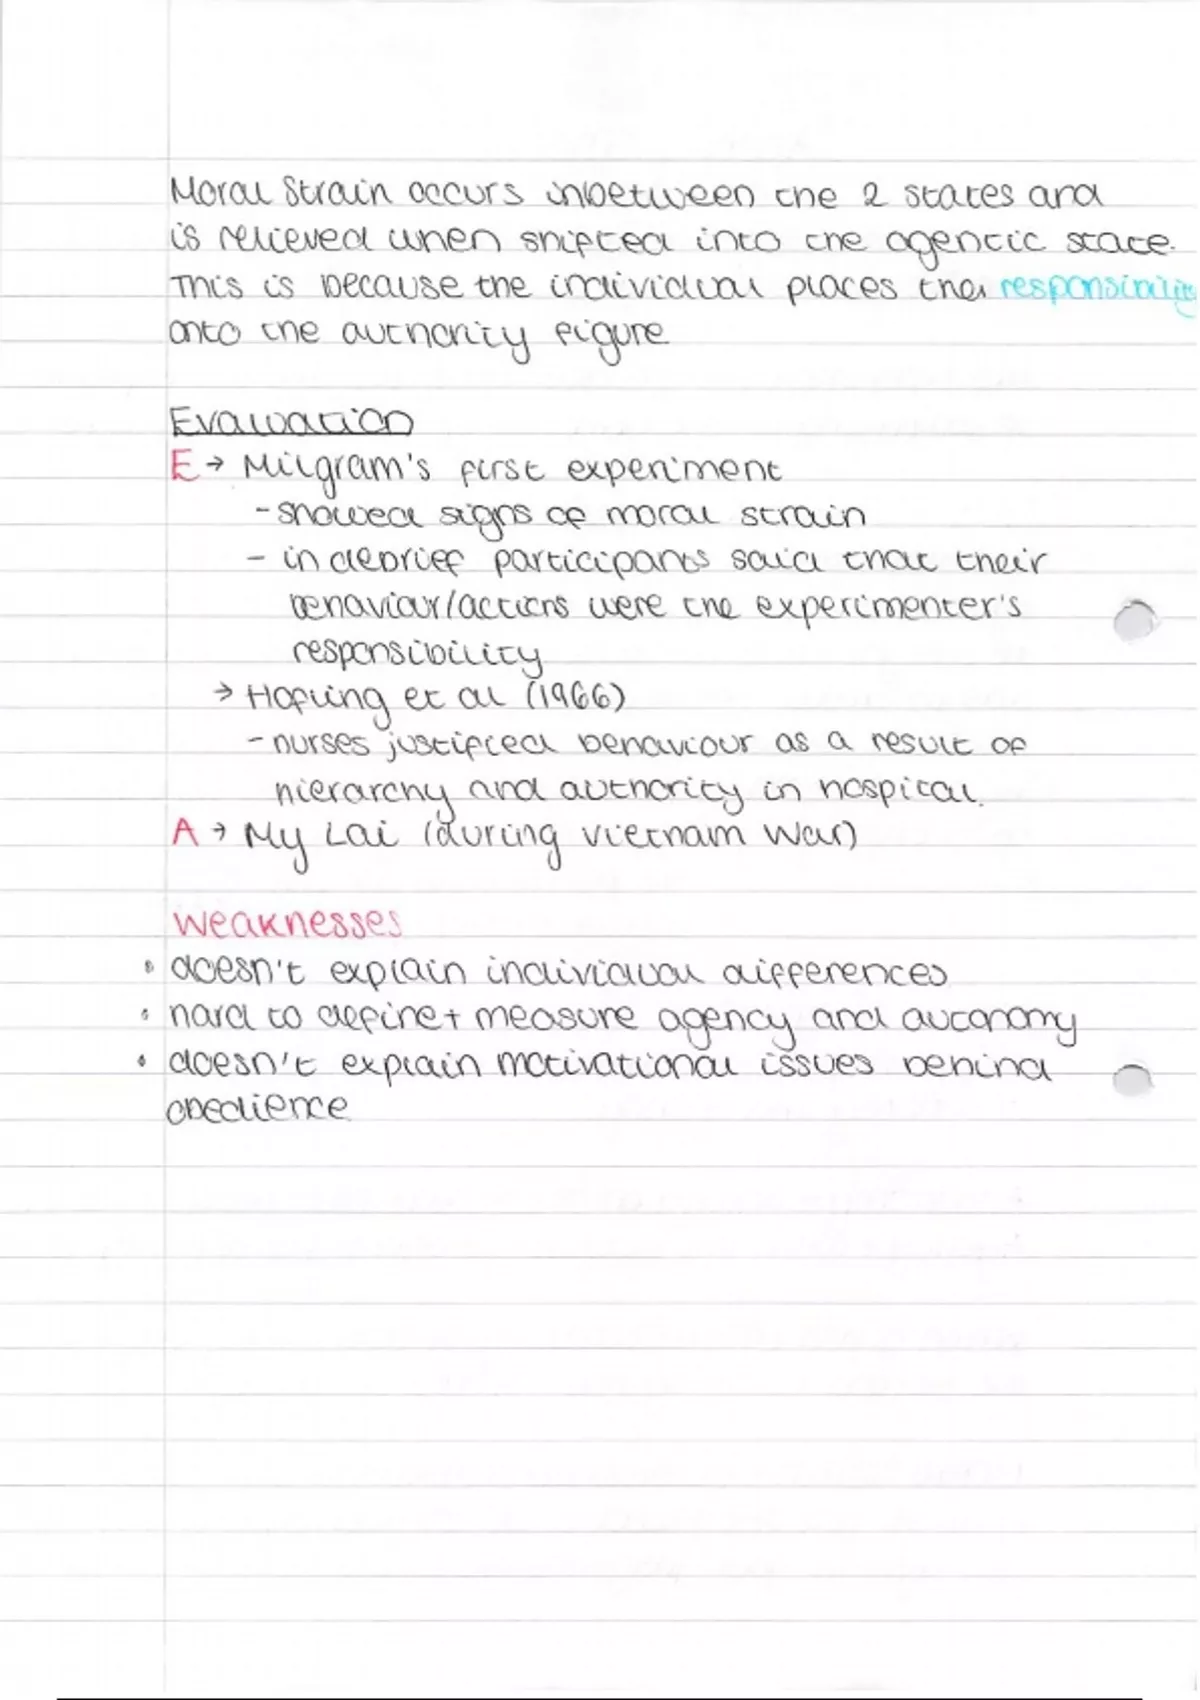 Moral Strain occurs inbetween the 2 states and
is relieved when shifted into the agentic state.
This is because the individual places their responsibility
onto the authority figure
Evaluation
E → Milgram's first experiment
- showed signs of moral strain
- in debrief participants said that their
behaviour/actions were the experimenter's
responsibility
→ Hofling et al (1966)
- nurses justified behaviour as a result of
hierarchy and authority in hospital.
A → My Lai (during vietnam war)
Weaknesses
• doesn't explain individual differences
• hard to define + measure agency and autonomy
• doesn't explain motivational issues behind
obedience